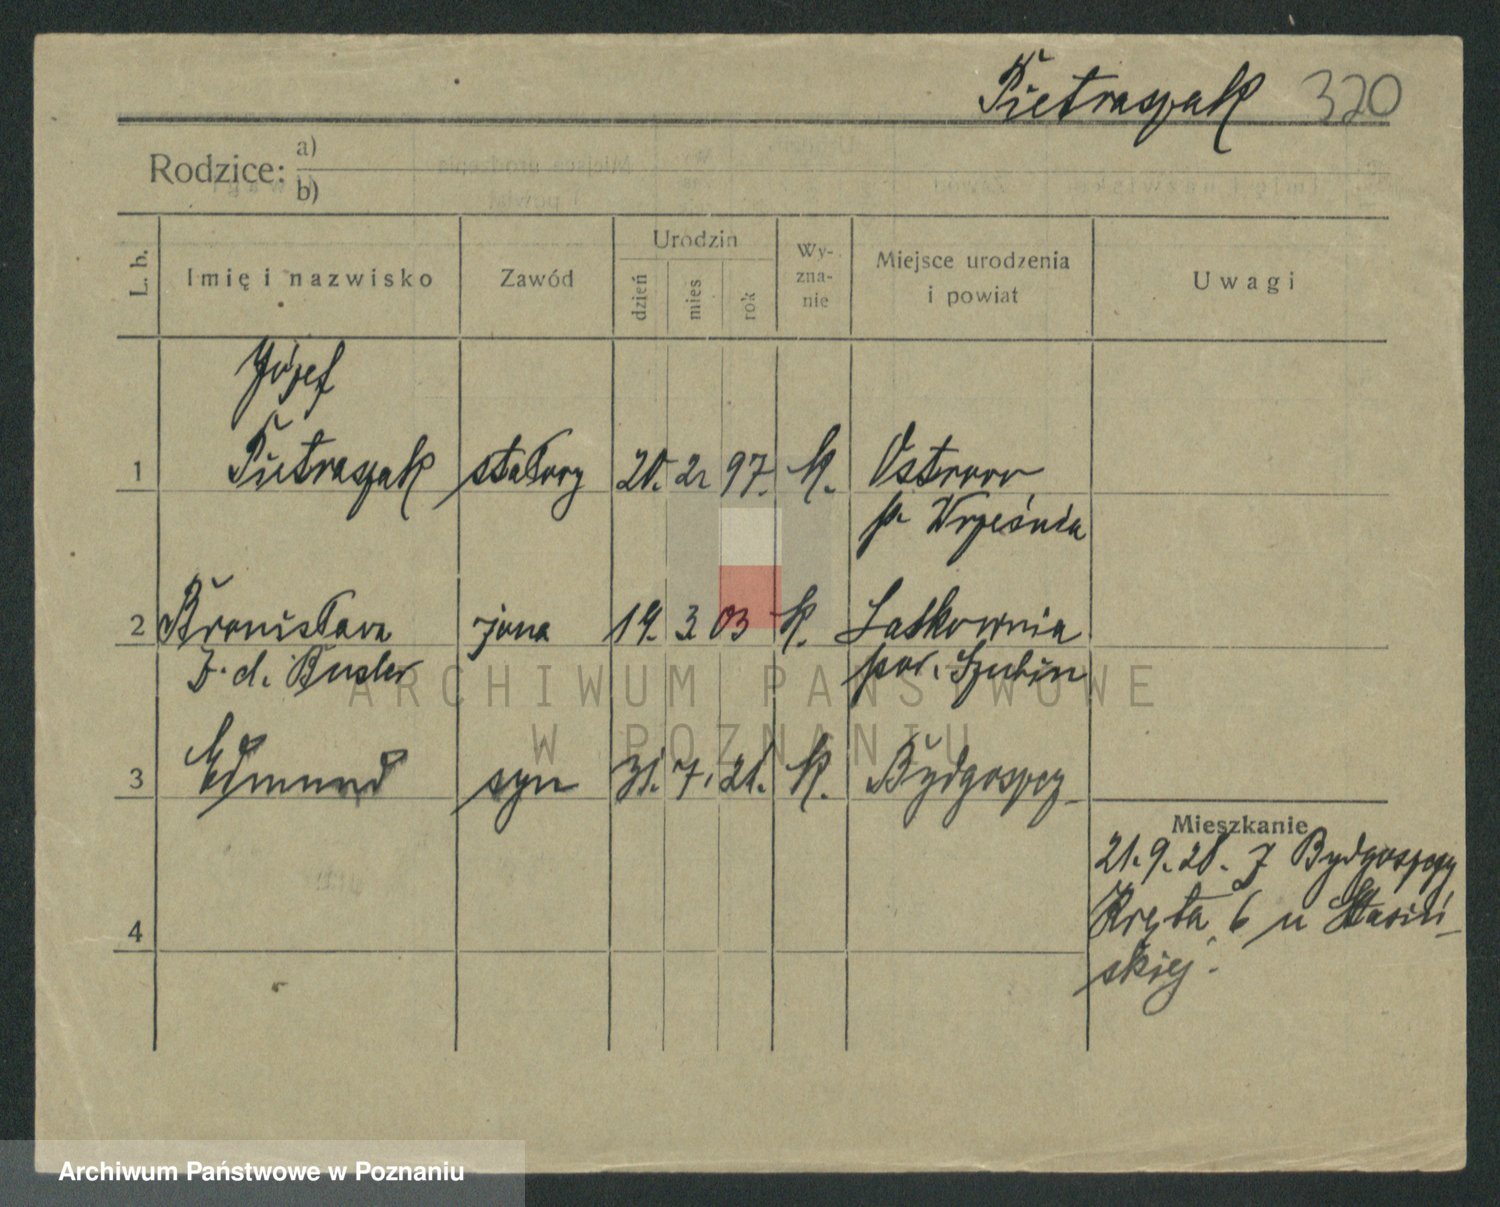 Pietraszak 320
Rodzice: a)
b)
L. b.
Imię i nazwisko
Zawód
Urodzin
dzień
mies
rok
Wy-
zna-
nie
Miejsce urodzenia
i powiat
Uwagi
Józef
1 Pietraszak stołowy 20. 2 97. k. Ostrowo
p. Września
2 Bronisława żona 19. 3 03 k. Laskownia
Z. d. Busler pow. Szubin
3 Edmund syn 31. 7. 21. k. Bydgoszcz
Mieszkanie
21. 9. 28. z Bydgoszczy
4 Kręta 6 u Stasiń-
skiej.
ARCHIWUM PAŃSTWOWE
W POZNANIU
Archiwum Państwowe w Poznaniu